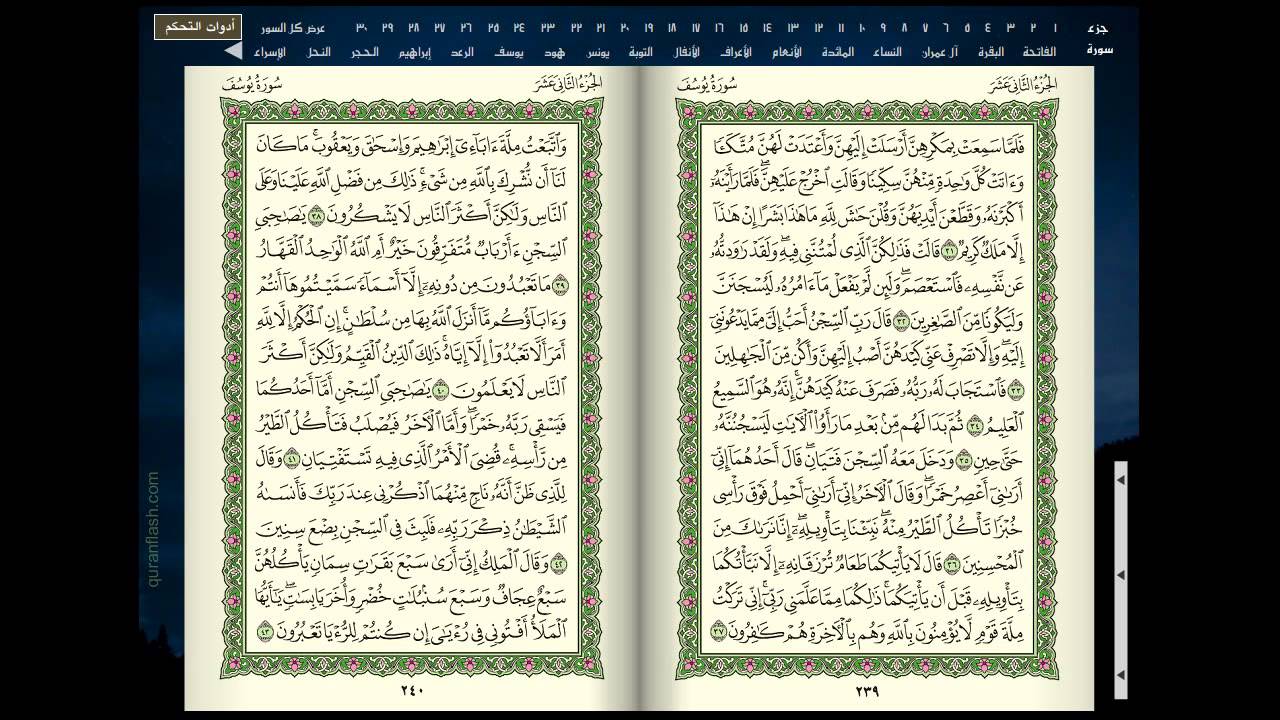 جزء ١ ٢ ٣ ٤ ٥ ٦ ٧ ٨ ٩ ١٠ ١١ ١٢ ١٣ ١٤ ١٥ ١٦ ١٧ ١٨ ١٩ ٢٠ ٢١ ٢٢ ٢٣ ٢٤ ٢٥ ٢٦ ٢٧ ٢٨ ٢٩ ٣٠ عرض كل السور أدوات التحكم
سورة الفاتحة البقرة آل عمران النساء المائدة الأنعام الأعراف الأنفال التوبة يونس هود يوسف الرعد إبراهيم الحجر النحل الإسراء
الجزء الثاني عشر سورة يوسف
فَلَمَّا سَمِعَتْ بِمَكْرِهِنَّ أَرْسَلَتْ إِلَيْهِنَّ وَأَعْتَدَتْ لَهُنَّ مُتَّكَـًٔا
وَءَاتَتْ كُلَّ وَٰحِدَةٍ مِّنْهُنَّ سِكِّينًا وَقَالَتِ ٱخْرُجْ عَلَيْهِنَّ ۖ فَلَمَّا رَأَيْنَهُۥٓ
أَكْبَرْنَهُۥ وَقَطَّعْنَ أَيْدِيَهُنَّ وَقُلْنَ حَٰشَ لِلَّهِ مَا هَٰذَا بَشَرًا إِنْ هَٰذَآ
إِلَّا مَلَكٌ كَرِيمٌ ٣١ قَالَتْ فَذَٰلِكُنَّ ٱلَّذِى لُمْتُنَّنِى فِيهِ ۖ وَلَقَدْ رَٰوَدتُّهُۥ
عَن نَّفْسِهِۦ فَٱسْتَعْصَمَ ۖ وَلَئِن لَّمْ يَفْعَلْ مَآ ءَامُرُهُۥ لَيُسْجَنَنَّ
وَلَيَكُونًا مِّنَ ٱلصَّٰغِرِينَ ٣٢ قَالَ رَبِّ ٱلسِّجْنُ أَحَبُّ إِلَىَّ مِمَّا يَدْعُونَنِىٓ
إِلَيْهِ ۖ وَإِلَّا تَصْرِفْ عَنِّى كَيْدَهُنَّ أَصْبُ إِلَيْهِنَّ وَأَكُن مِّنَ ٱلْجَٰهِلِينَ
٣٣ فَٱسْتَجَابَ لَهُۥ رَبُّهُۥ فَصَرَفَ عَنْهُ كَيْدَهُنَّ ۚ إِنَّهُۥ هُوَ ٱلسَّمِيعُ
ٱلْعَلِيمُ ٣٤ ثُمَّ بَدَا لَهُم مِّنۢ بَعْدِ مَا رَأَوُا۟ ٱلْءَايَٰتِ لَيَسْجُنُنَّهُۥ
حَتَّىٰ حِينٍ ٣٥ وَدَخَلَ مَعَهُ ٱلسِّجْنَ فَتَيَانِ ۖ قَالَ أَحَدُهُمَآ إِنِّىٓ
أَرَىٰنِىٓ أَعْصِرُ خَمْرًا ۖ وَقَالَ ٱلْءَاخَرُ إِنِّىٓ أَرَىٰنِىٓ أَحْمِلُ فَوْقَ رَأْسِى
خُبْزًا تَأْكُلُ ٱلطَّيْرُ مِنْهُ ۖ نَبِّئْنَا بِتَأْوِيلِهِۦٓ ۖ إِنَّا نَرَىٰكَ مِنَ
ٱلْمُحْسِنِينَ ٣٦ قَالَ لَا يَأْتِيكُمَا طَعَامٌ تُرْزَقَانِهِۦٓ إِلَّا نَبَّأْتُكُمَا
بِتَأْوِيلِهِۦ قَبْلَ أَن يَأْتِيَكُمَا ۚ ذَٰلِكُمَا مِمَّا عَلَّمَنِى رَبِّىٓ ۚ إِنِّى تَرَكْتُ
مِلَّةَ قَوْمٍ لَّا يُؤْمِنُونَ بِٱللَّهِ وَهُم بِٱلْءَاخِرَةِ هُمْ كَٰفِرُونَ ٣٧
٢٣٩
الجزء الثاني عشر سورة يوسف
وَٱتَّبَعْتُ مِلَّةَ ءَابَآءِىٓ إِبْرَٰهِيمَ وَإِسْحَٰقَ وَيَعْقُوبَ ۚ مَا كَانَ
لَنَآ أَن نُّشْرِكَ بِٱللَّهِ مِن شَىْءٍ ۚ ذَٰلِكَ مِن فَضْلِ ٱللَّهِ عَلَيْنَا وَعَلَى
ٱلنَّاسِ وَلَٰكِنَّ أَكْثَرَ ٱلنَّاسِ لَا يَشْكُرُونَ ٣٨ يَٰصَٰحِبَىِ
ٱلسِّجْنِ ءَأَرْبَابٌ مُّتَفَرِّقُونَ خَيْرٌ أَمِ ٱللَّهُ ٱلْوَٰحِدُ ٱلْقَهَّارُ
٣٩ مَا تَعْبُدُونَ مِن دُونِهِۦٓ إِلَّآ أَسْمَآءً سَمَّيْتُمُوهَآ أَنتُمْ
وَءَابَآؤُكُم مَّآ أَنزَلَ ٱللَّهُ بِهَا مِن سُلْطَٰنٍ ۚ إِنِ ٱلْحُكْمُ إِلَّا لِلَّهِ ۚ
أَمَرَ أَلَّا تَعْبُدُوٓا۟ إِلَّآ إِيَّاهُ ۚ ذَٰلِكَ ٱلدِّينُ ٱلْقَيِّمُ وَلَٰكِنَّ أَكْثَرَ
ٱلنَّاسِ لَا يَعْلَمُونَ ٤٠ يَٰصَٰحِبَىِ ٱلسِّجْنِ أَمَّآ أَحَدُكُمَا
فَيَسْقِى رَبَّهُۥ خَمْرًا ۖ وَأَمَّا ٱلْءَاخَرُ فَيُصْلَبُ فَتَأْكُلُ ٱلطَّيْرُ
مِن رَّأْسِهِۦ ۚ قُضِىَ ٱلْأَمْرُ ٱلَّذِى فِيهِ تَسْتَفْتِيَانِ ٤١ وَقَالَ
لِلَّذِى ظَنَّ أَنَّهُۥ نَاجٍ مِّنْهُمَا ٱذْكُرْنِى عِندَ رَبِّكَ فَأَنسَىٰهُ
ٱلشَّيْطَٰنُ ذِكْرَ رَبِّهِۦ فَلَبِثَ فِى ٱلسِّجْنِ بِضْعَ سِنِينَ
٤٢ وَقَالَ ٱلْمَلِكُ إِنِّىٓ أَرَىٰ سَبْعَ بَقَرَٰتٍ سِمَانٍ يَأْكُلُهُنَّ
سَبْعٌ عِجَافٌ وَسَبْعَ سُنۢبُلَٰتٍ خُضْرٍ وَأُخَرَ يَابِسَٰتٍ ۖ يَٰٓأَيُّهَا
ٱلْمَلَأُ أَفْتُونِى فِى رُءْيَٰىَ إِن كُنتُمْ لِلرُّءْيَا تَعْبُرُونَ ٤٣
٢٤٠
quranflash.com